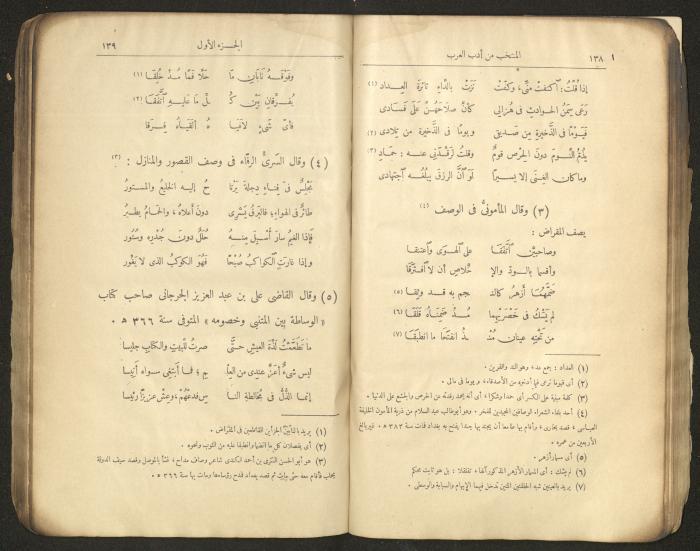 ١٣٨
المنتخب من أدب العرب
إذا قُلْتُ: اكتفتْ منّى، وكفّتْ نزتْ بالدَّاءِ ثائرةُ العِداد (١)
رَعَى سِمَنُ الحوادثِ فى هُزالى كأنّ صلاحَهُنّ علَى فسادى
فَيَوْمًا فى الذَّخيرةِ مِن صَديقى ويومًا فى الذَّخيرةِ من تِلادى (٢)
يذُمُّ النَّوْمَ دونَ الحِرْصِ قومٌ وقلتُ لرَقْدَتى عنه : حَمادِ (٣)
وما كان الغِنَى إلا يسيرًا لوَ أنَّ الرزقَ يبلُغُه اجتهادى
(٣) وقال المأمونىّ فى الوصف (٤)
يصف المقراض :
وصاحبَيْنِ اتَّفقَا على الهوَى واعتنقا
وأقسما بالودِّ والإ خلاصِ أن لا افترقا
ضمَّهُما أزهرُ كالـ نجم به قد وثِقا (٥)
لم يَشُكْ فى خَصْرَيْهِما مُذْ ضُمِّناهُ قَلَقَا (٦)
من تحتِه عينانِ مُنْـ ـذُ انفتَحَا ما انطبقَا (٧)
(١) العداد :
(٢) أى فيوما ترى فيما أدخره من الأصدقاء، ويوما فى مالى .
(٣) كلمة مبنية على الكسر أى حمدا وشكرا، أى أنه يحمد رقدته عن الحرص والجشع على الدنيا .
(٤) أحد بلغاء الشعراء الوصافين المجيدين للفخر . وهو أبو طالب عبد السلام من ذرية المأمون الخليفة
العباسى، قصد بخارى، وأقام بها طامعا أن يجند بها جندا يفتح به بغداد فمات سنة ٣٨٣ هـ . غير بالغ
الأربعين من عمره .
(٥) أى مسمار أزهر .
(٦) لم يشك : أى المسمار الأزهر المذكور آنفا، تقلقلا : بل هو ثابت محكم
(٧) يريد بالعينين شبه الحلقتين اللتين تدخل فيهما الإبهام والسبابة والوسطى .
الجزء الأول
١٣٩
وفوقَه نابَانِ ما حَلّا فمًا مُذْ خُلِقا (١)
يُفَرِّقانِ بيْنَ كُـ ـلّ ما عليهِ اتَّفَقَا (٢)
فأىُّ شىءٍ لاقيا هُ ألفَياهُ فِرَقا
(٤) وقال السَرىُّ الرفّاء فى وصف القصور والمنازل : (٣)
مجْلِسٌ فى فِناءِ دِجلةَ يَرْتا حُ إليه الخليعُ والمستورُ
طائرٌ فى الهواءِ؛ فالبرقُ يَسْرِى دونَ أعلاهُ، والحَمامُ يطيرُ
فإذا الغيمُ سار أُسْبِلَ منه حُلَلٌ دونَ جُدْرِه وسُتُور
وإذا غارتِ الكواكبُ صُبْحًا فهْوَ الكوكبُ الذى لا يَغُور
(٥) وقال القاضى على بن عبد العزيز الجرجانى صاحب كتاب
«الوساطة بين المتنبى وخصومه» المتوفى سنة ٣٦٦ هـ .
ما تَطَعَّمْتُ لذّةَ العيشِ حتَّى صرتُ للبيتِ والكتابِ جليسا
ليس شىءٌ أعزَّ عندى من العلـ ـم ؛ فما أبتغى سواه أنيسا
إنما الذُّلُّ فى مُخالطةِ النا سِ فدَعْهُمْ، وعِشْ عزيزًا رئيسا
(١) يريد بالنابين الجزأين القاطعين فى المقراض .
(٢) أى يفصلان كل ما انضما وانطبقا عليه من الثوب ونحوه .
(٣) هو أبو الحسن السرى بن أحمد الكندى شاعر وصاف مداح، نشأ بالموصل وقصد سيف الدولة
بحلب فأقام معه حتى مات ثم قصد بغداد فمدح رؤساءها ومات بها سنة ٣٦٦ هـ .